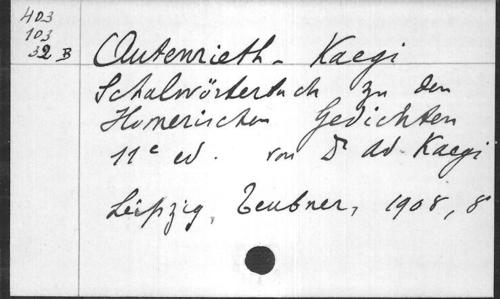 403
103
32 B
Autenrieth - Kaegi
Schulwörterbuch zu den
Homerischen Gedichten
11e ed. von Dr Ad. Kaegi
Leipzig, Teubner, 1908, 8°